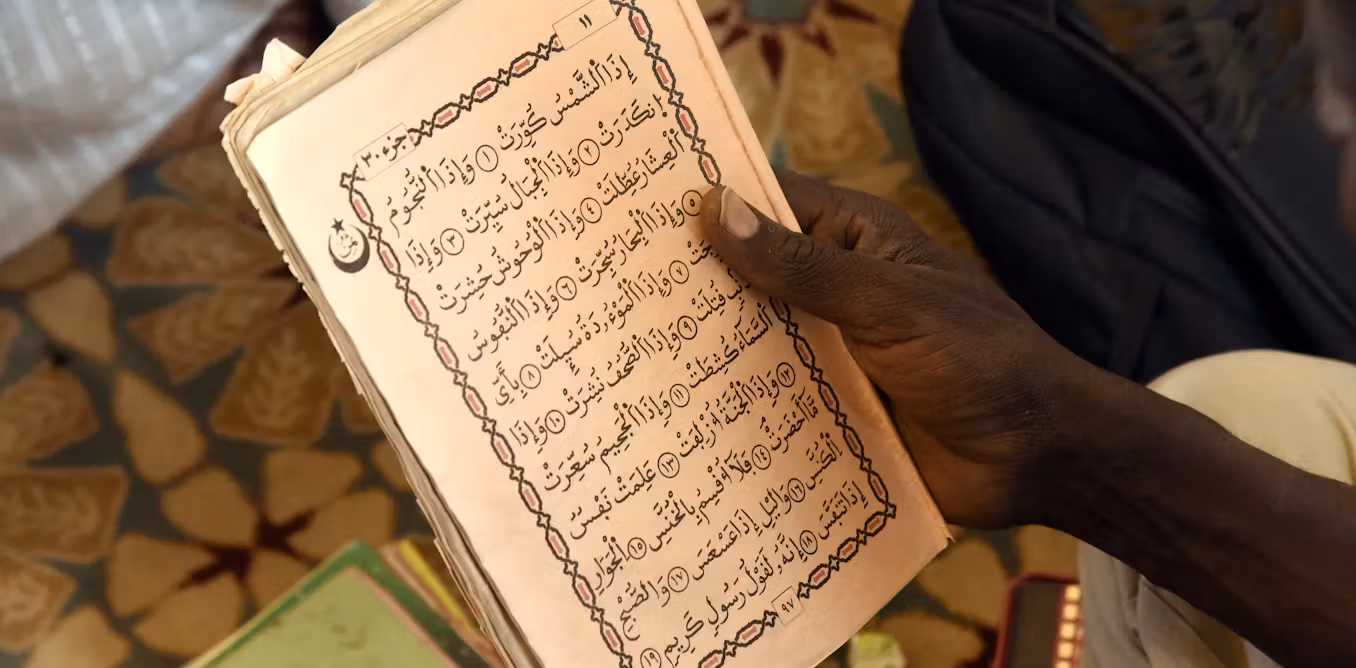 ١١
جزء ٣٠
إِذَا ٱلشَّمْسُ كُوِّرَتْ ١ وَإِذَا ٱلنُّجُومُ
ٱنكَدَرَتْ ٢ وَإِذَا ٱلْجِبَالُ سُيِّرَتْ ٣ وَإِذَا
ٱلْعِشَارُ عُطِّلَتْ ٤ وَإِذَا ٱلْوُحُوشُ حُشِرَتْ
٥ وَإِذَا ٱلْبِحَارُ سُجِّرَتْ ٦ وَإِذَا ٱلنُّفُوسُ
٧ وَإِذَا ٱلْمَوْءُۥدَةُ سُئِلَتْ ٨ بِأَىِّ
قُتِلَتْ ٩ وَإِذَا ٱلصُّحُفُ نُشِرَتْ ١٠ وَإِذَا
ٱلسَّمَآءُ كُشِطَتْ ١١ وَإِذَا ٱلْجَحِيمُ سُعِّرَتْ
١٢ وَإِذَا ٱلْجَنَّةُ أُزْلِفَتْ ١٣ عَلِمَتْ نَفْسٌ
مَّآ أَحْضَرَتْ ١٤ فَلَآ أُقْسِمُ بِٱلْخُنَّسِ ١٥ ٱلْجَوَارِ
ٱلْكُنَّسِ ١٦ وَٱلَّيْلِ إِذَا عَسْعَسَ ١٧ وَٱلصُّبْحِ
إِذَا تَنَفَّسَ ١٨ إِنَّهُۥ لَقَوْلُ رَسُولٍ كَرِيمٍ ١٩
٩٧